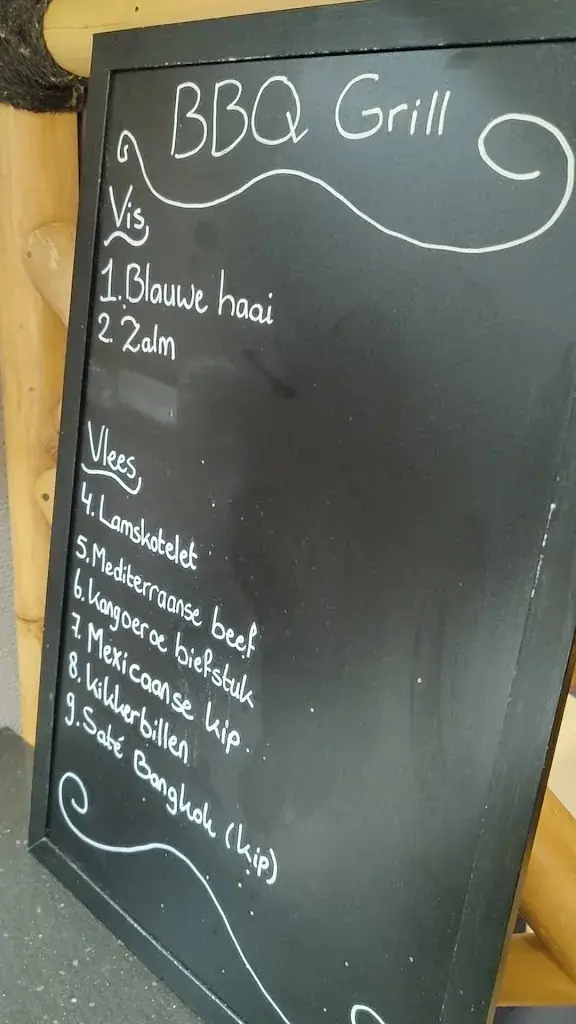 BBQ Grill
Vis
1. Blauwe haai
2. Zalm
Vlees
4. Lamskotelet
5. Mediterraanse beef
6. Kangoeroe biefstuk
7. Mexicaanse kip
8. Kikkerbillen
9. Saté Bangkok (kip)